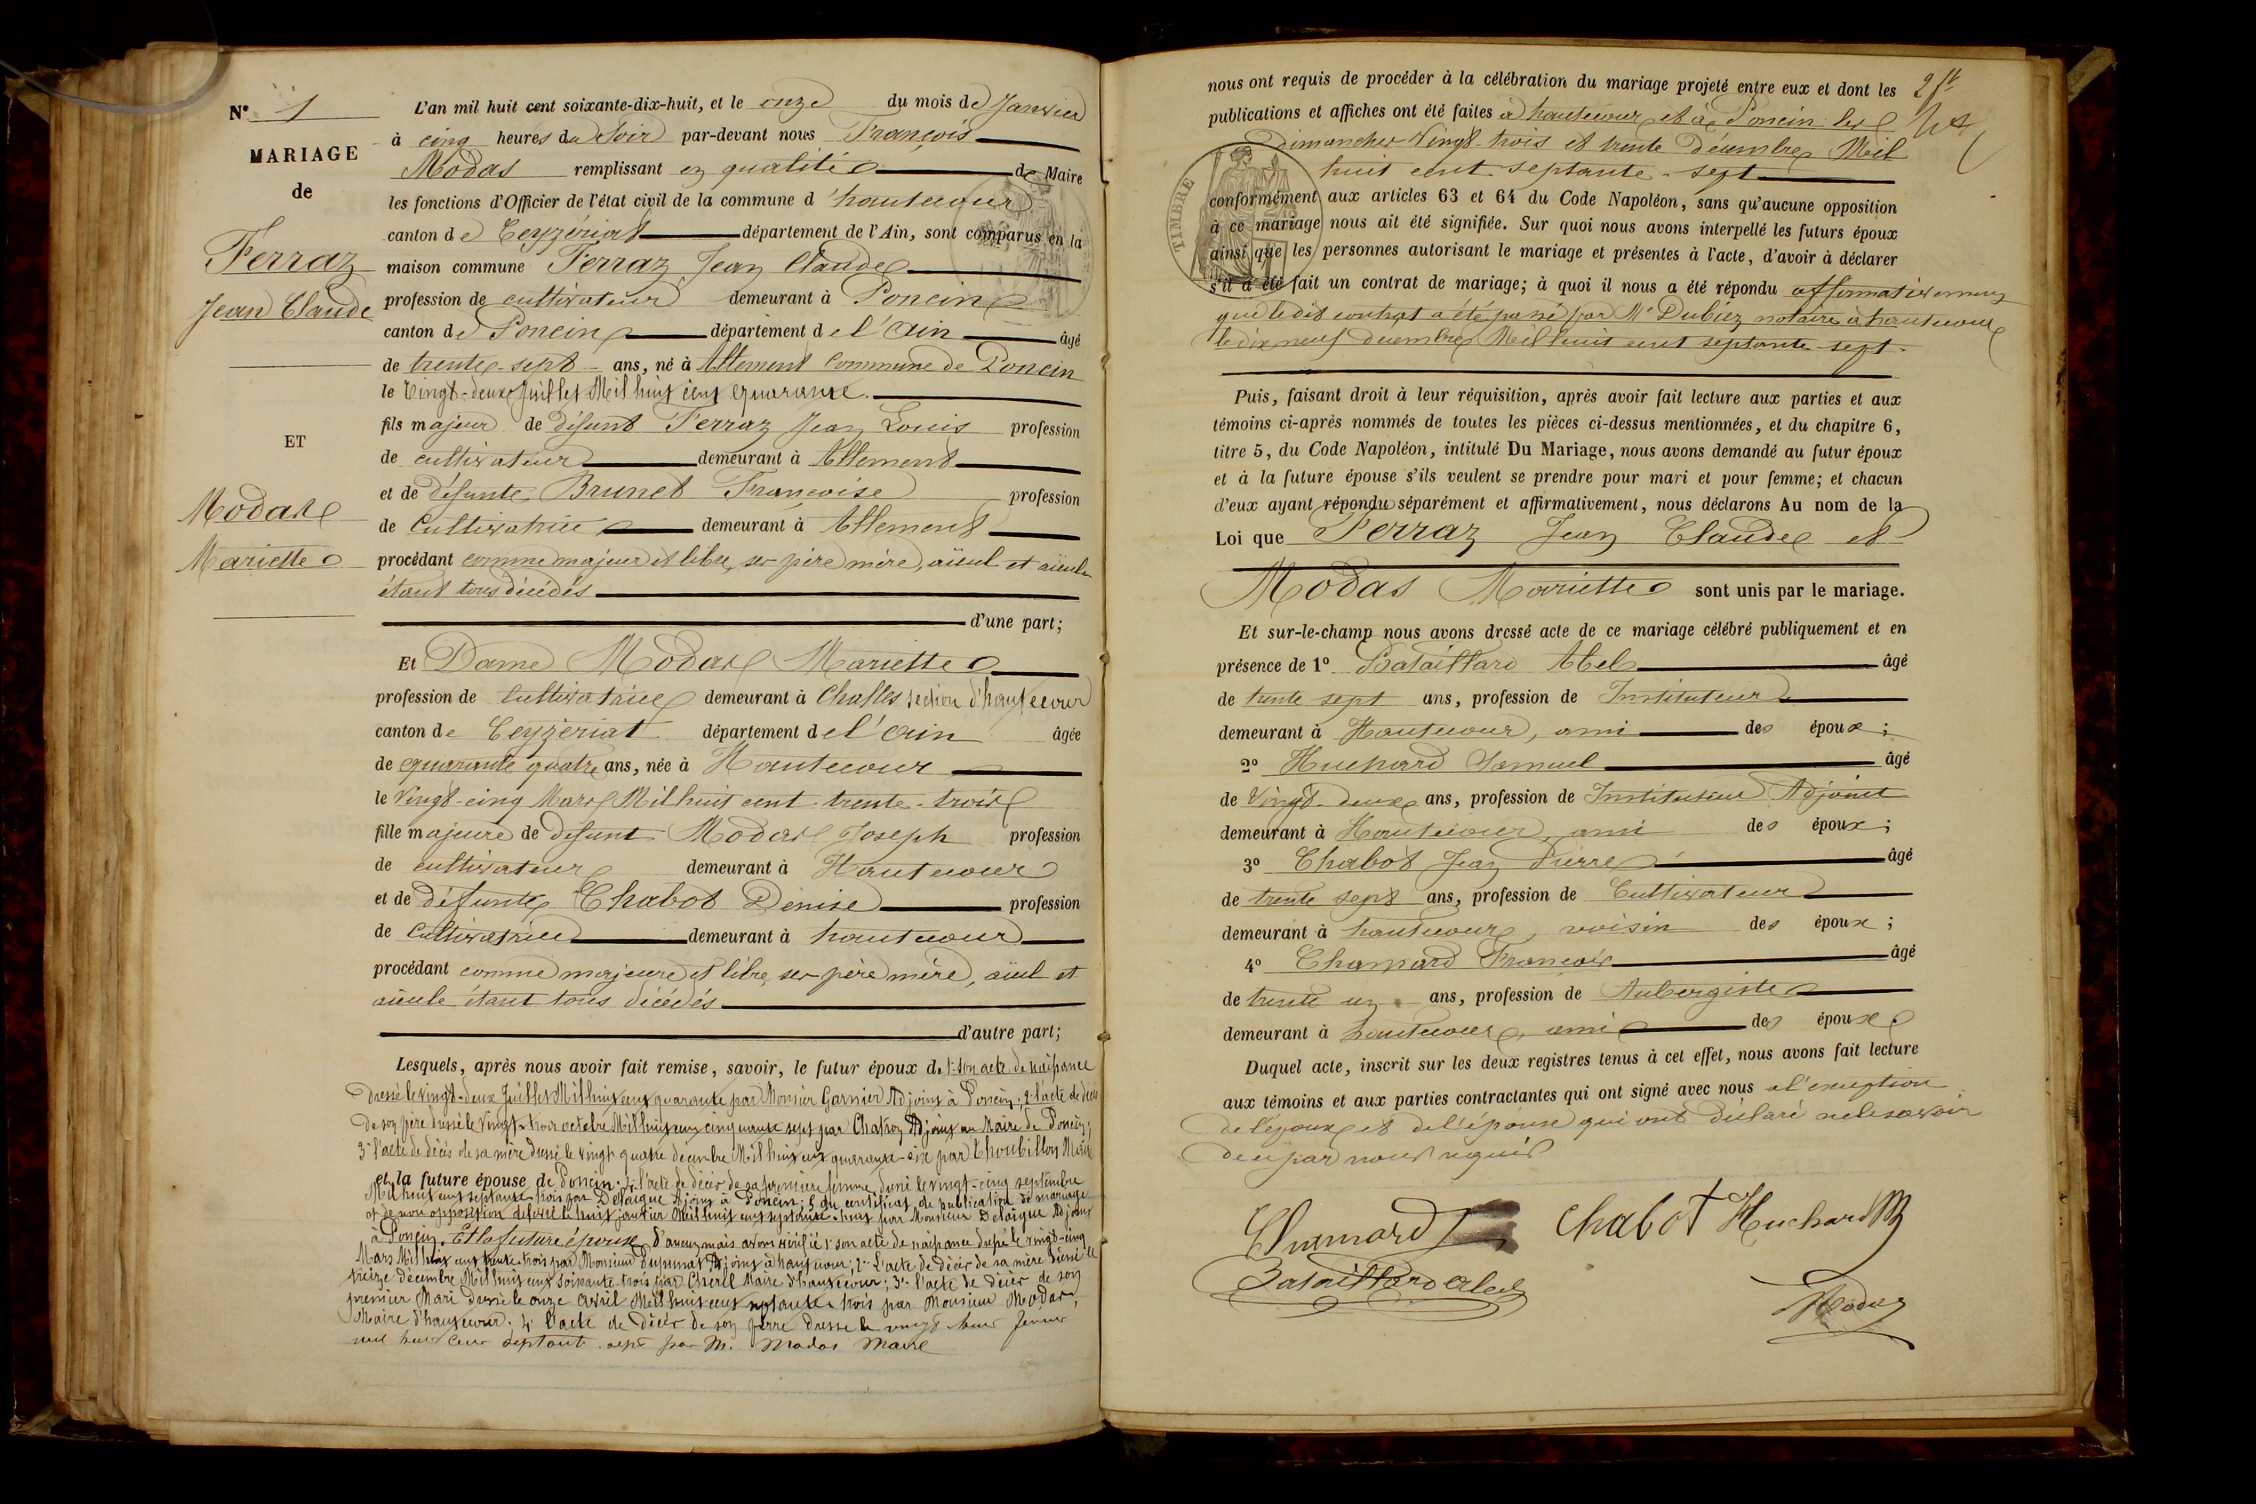 N° 1
MARIAGE
de
Ferraz
Jean Claude
ET
Modas
Mariette
L'an mil huit cent soixante-dix-huit, et le onze du mois de Janvier
à cinq heures du Soir par-devant nous François
Modas remplissant en qualité de Maire
les fonctions d'Officier de l'état civil de la commune d'hautecour
canton de Ceyzériat département de l'Ain, sont comparus en la
maison commune Ferraz Jean Claude
profession de cultivateur demeurant à Poncin
canton de Poncin département de l'Ain âgé
de trente-sept ans, né à Allement Commune de Poncin
le Vingt-deux Juillet Mil huit cent quarante
fils majeur de défunt Ferraz Jean Louis profession
de cultivateur demeurant à Allement
et de défunte Brunet Françoise profession
de Cultivatrice demeurant à Allement
procédant comme majeur et libre, ses père mère, aïeul et aïeule
étant tous décédés
d'une part;
Et Dame Modas Mariette
profession de Cultivatrice demeurant à Challes section d'hautecour
canton de Ceyzériat département de l'Ain âgée
de quarante quatre ans, née à Hautecour
le Vingt-cinq Mars Mil huit cent trente-trois
fille majeure de défunt Modas Joseph profession
de cultivateur demeurant à Hautecour
et de défunte Chabot Denise profession
de Cultivatrice demeurant à hautecour
procédant comme majeure et libre, ses père mère, aïeul et
aïeule étant tous décédés
d'autre part;
Lesquels, après nous avoir fait remise, savoir, le futur époux de 1° son acte de naissance
Dressé le Vingt-deux Juillet Mil huit cent quarante par Monsieur Garnier Adjoint à Poncin; 2° l'acte de décès
de son père dressé le Vingt-trois octobre Mil huit cent cinquante sept par Adjoint au Maire de Poncin;
3° l'acte de décès de sa mère dressé le vingt quatre décembre Mil huit cent quarante-six par Thoubillon Maire
et la future épouse de Poncin; 4° l'acte de décès de sa première femme dressé le vingt-cinq septembre
Mil huit cent septante trois par Delaigue Adjoint à Poncin; 5° du certificat de publication de mariage
et de non opposition délivré le huit janvier Mil huit cent septante-huit par Monsieur Delaigue Adjoint
à Poncin. Et la future épouse d'aucun mais avons vérifié 1° son acte de naissance dressé le vingt-cinq
Mars Mil huit cent trente-trois par Monsieur Adjoint à hautecour; 2° L'acte de décès de sa mère dressé le
treize décembre Mil huit cent soixante-trois par Maire d'hautecour; 3° l'acte de décès de son
premier Mari dressé le onze avril Mil huit cent septante-trois par Monsieur Modas,
Maire d'hautecour. 4° l'acte de décès de son père dressé le vingt février
mil huit cent septante-sept par M. Modas Maire
nous ont requis de procéder à la célébration du mariage projeté entre eux et dont les
publications et affiches ont été faites à hautecour et à Poncin les
dimanches Vingt-trois et trente Décembre Mil
huit cent septante-sept
TIMBRE
conformément aux articles 63 et 64 du Code Napoléon, sans qu'aucune opposition
à ce mariage nous ait été signifiée. Sur quoi nous avons interpellé les futurs époux
ainsi que les personnes autorisant le mariage et présentes à l'acte, d'avoir à déclarer
s'il a été fait un contrat de mariage; à quoi il nous a été répondu affirmativement
que ledit contrat a été passé par Me Dubiez notaire à hautecour
le dix neuf décembre Mil huit cent septante-sept.
Puis, faisant droit à leur réquisition, après avoir fait lecture aux parties et aux
témoins ci-après nommés de toutes les pièces ci-dessus mentionnées, et du chapitre 6,
titre 5, du Code Napoléon, intitulé Du Mariage, nous avons demandé au futur époux
et à la future épouse s'ils veulent se prendre pour mari et pour femme; et chacun
d'eux ayant répondu séparément et affirmativement, nous déclarons Au nom de la
Loi que Ferraz Jean Claude et
Modas Mariette sont unis par le mariage.
Et sur-le-champ nous avons dressé acte de ce mariage célébré publiquement et en
présence de 1° Bataillard Abel âgé
de trente sept ans, profession de Instituteur
demeurant à Hautecour, ami des époux;
2° Huchard Samuel âgé
de Vingt-deux ans, profession de Instituteur Adjoint
demeurant à Hautecour, ami des époux;
3° Chabot Jean Pierre âgé
de trente sept ans, profession de Cultivateur
demeurant à hautecour, voisin des époux;
4° Chanard François âgé
de trente un ans, profession de Aubergiste
demeurant à hautecour, ami des époux.
Duquel acte, inscrit sur les deux registres tenus à cet effet, nous avons fait lecture
aux témoins et aux parties contractantes qui ont signé avec nous à l'exception
de l'époux et de l'épouse qui ont déclaré ne le savoir
de ce par nous requis
Chabot Huchard
Bataillard Abel
Modas